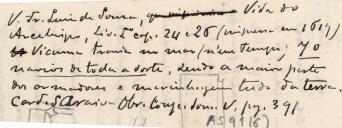 V. Fr. Luis de Sousa, Vida do
Arcebispo, Liv. I cap. 24 e 26 (impressa em 1619)
Vianna trazia no mar (n'um tempo) 70
navios de toda a sorte, sendo a maior parte
dos armadores e marinhagem tudo da terra.
Card. Saraiva Obr. Comp. tom. V, pg. 391
AS91(6)